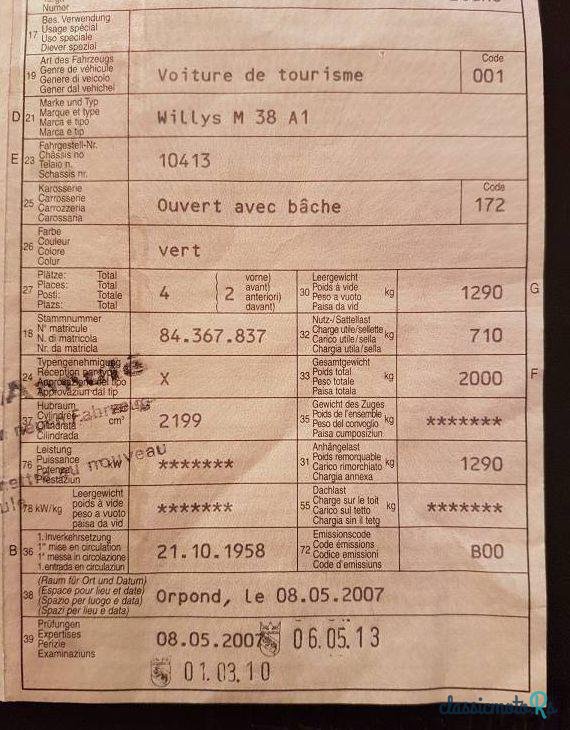 Numéro
Numer
17 Bes. Verwendung
Usage spécial
Uso speciale
Diever spezial
19 Art des Fahrzeugs
Genre de véhicule
Genere di veicolo
Gener dal vehichel
Voiture de tourisme
Code
001
D 21 Marke und Typ
Marque et type
Marca e tipo
Marca e tip
Willys M 38 A1
E 23 Fahrgestell-Nr.
Châssis no
Telaio n.
Schassis nr.
10413
25 Karosserie
Carrosserie
Carrozzeria
Carossaria
Ouvert avec bâche
Code
172
26 Farbe
Couleur
Colore
Colur
vert
27 Plätze: Total
Places: Total
Posti: Totale
Plazs: Total
4
2
vorne)
avant)
anteriori)
davant)
30 Leergewicht
Poids à vide
Peso a vuoto
Paisa da vid
kg
1290
G
18 Stammnummer
N° matricule
N. di matricola
Nr. da matricla
84.367.837
32 Nutz-/Sattellast
Charge utile/sellette
Carico utile/sella
Chargia utila/sella
kg
710
24 Typengenehmigung
Réception par type
Approvazione del tipo
Approvaziun dal tip
X
33 Gesamtgewicht
Poids total
Peso totale
Paisa totala
kg
2000
F
37 Hubraum
Cylindrée
Cilindrata
Cilindrada
cm³
2199
35 Gewicht des Zuges
Poids de l'ensemble
Peso del convoglio
Paisa cumposiziun
kg
*******
76 Leistung
Puissance
Potenza
Prestaziun
kW
*******
31 Anhängelast
Poids remorquable
Carico rimorchiato
Chargia annexa
kg
1290
78 kW/kg
Leergewicht
poids à vide
peso a vuoto
paisa da vid
*******
55 Dachlast
Charge sur le toit
Carico sul tetto
Chargia sin il tetg
kg
*******
B 36 1.Inverkehrsetzung
1re mise en circulation
1a messa in circolazione
1.entrada en circulaziun
21.10.1958
72 Emissionscode
Code émissions
Codice emissioni
Code d'emissiuns
B00
38 (Raum für Ort und Datum)
(Espace pour lieu et date)
(Spazio per luogo e data)
(Spazi per lieu e data)
Orpond, le 08.05.2007
39 Prüfungen
Expertises
Perizie
Examinaziuns
08.05.2007
06.05.13
01.03.10
Fahrzeug
nouveau
classicmotoRs